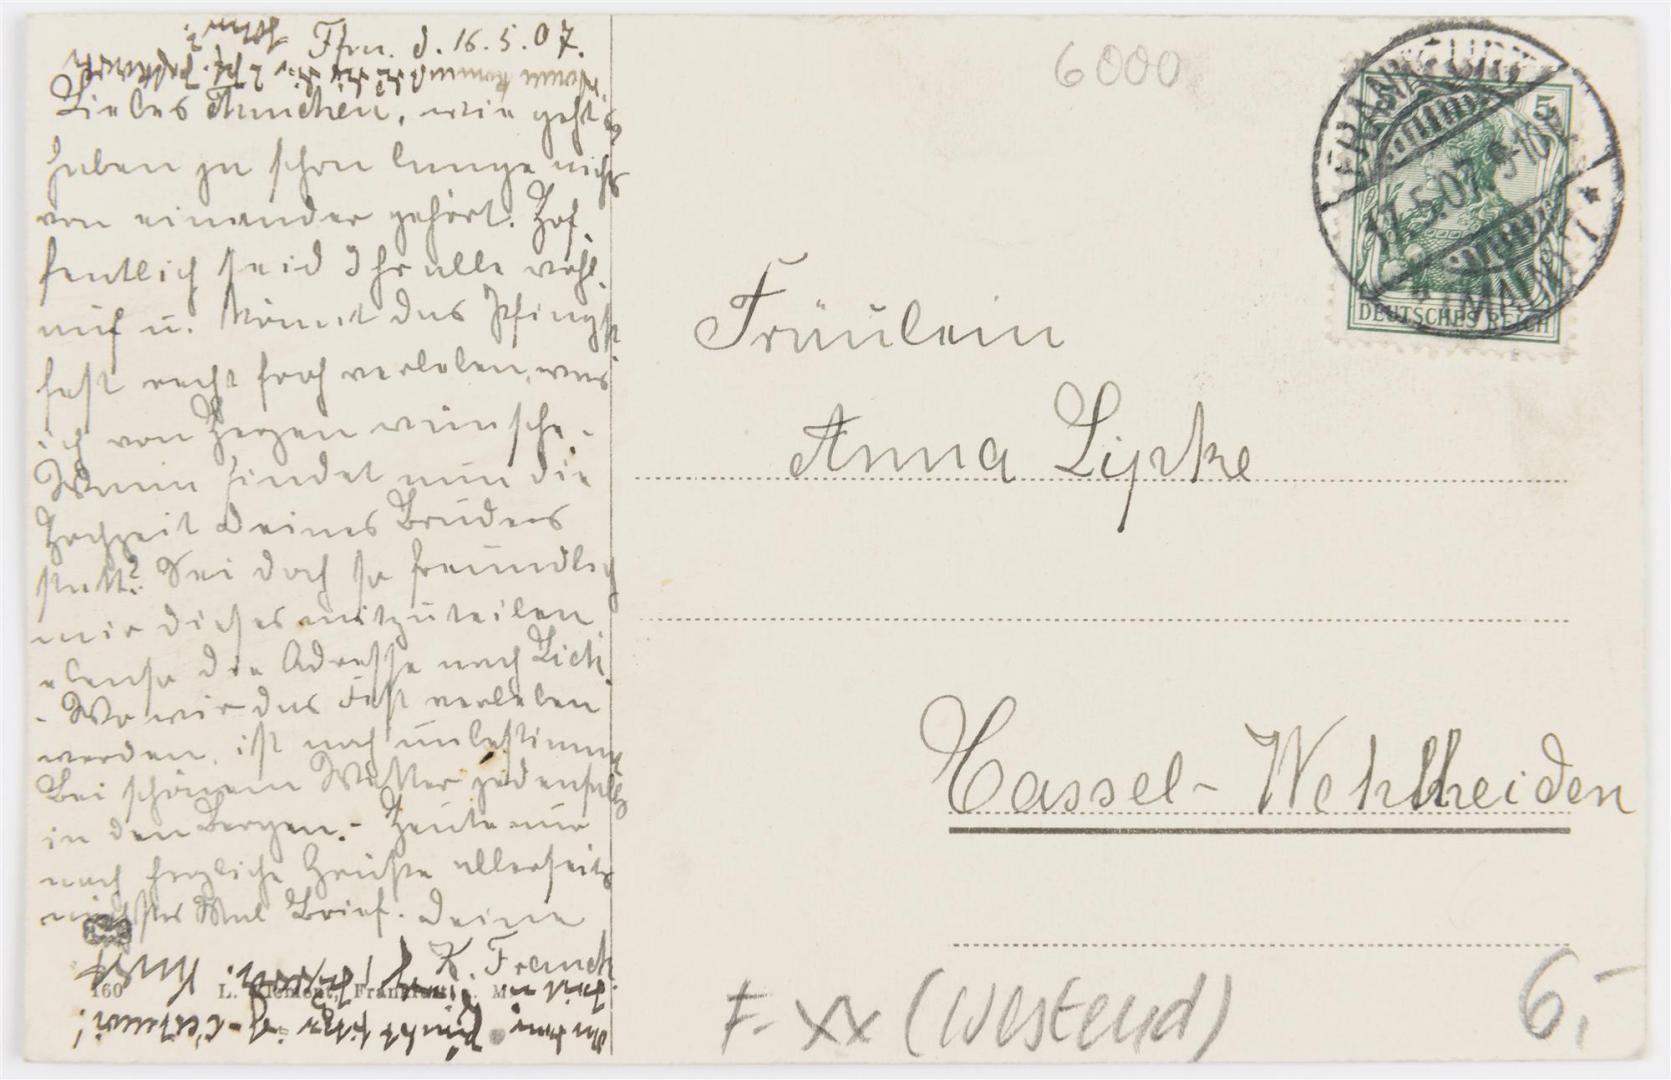 Ffm. d. 16.5.07.
Liebes Annchen, wie geht's
haben ja schon lange nichts
von einander gehört. Hof-
fentlich seid Ihr alle wohl-
auf u. könnt das Pfingst-
fest recht froh verleben, was
ich von Herzen wünsche.-
Wann findet nun die
Hochzeit Deines Bruders
statt? Sei doch so freundlich
mir dieses mitzuteilen
ebenso die Adresse nach
- Wo wir das Fest verleben
werden, ist noch unbestimmt
Bei schönem Wetter jedenfalls
in den Bergen.- Heute nur
noch herzliche Grüße allerseits
nächstes Mal Brief. Deine
K. Franck
160 L. Klement, Frankfurt a. M.
6000
FRANKFURT
17.5.07. 9-10
* (MAIN) 1. *
5
DEUTSCHES REICH
Fräulein
Anna Lipke
Cassel-Wehlheiden
F. XX (Westend)
6,-